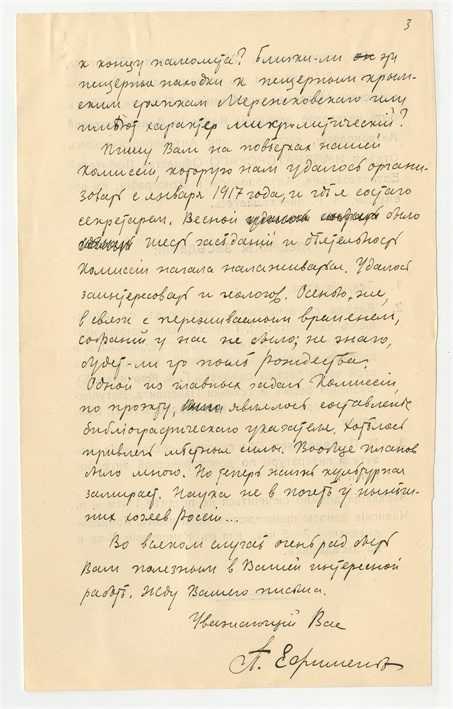 3
к концу палеолита? Близки-ли эти
пещерные находки к пещерным крым-
ским стоянкам Мережковскаго или
имѣют характер микролитический?
Пишу Вам на повѣстках нашей
Комиссіи, которую нам удалось органи-
зовать с января 1917 года, и гдѣ я состою
секретарем. Весной было
шесть засѣданий и дѣятельность
Комиссіи начала налаживаться. Удалось
заинтересовать и геологов. Осенью, же,
в связи с переживаемым временем,
собраний у нас не было; не знаю,
будет-ли это послѣ Рождества.
Одной из главных задач Комиссіи,
по проэкту, являлось составленіе
библіографическаго указателя. Хотѣлось
привлечь мѣстныя силы. Вообще планов
было много. Но теперь жизнь культурная
замирает. Наука не в почетѣ у нынѣш-
них хозяев Россіи...
Во всяком случаѣ очень рад быть
Вам полезным в Вашей интересной
работѣ. Жду Вашего письма.
Уважающій Вас
П. Ефименко